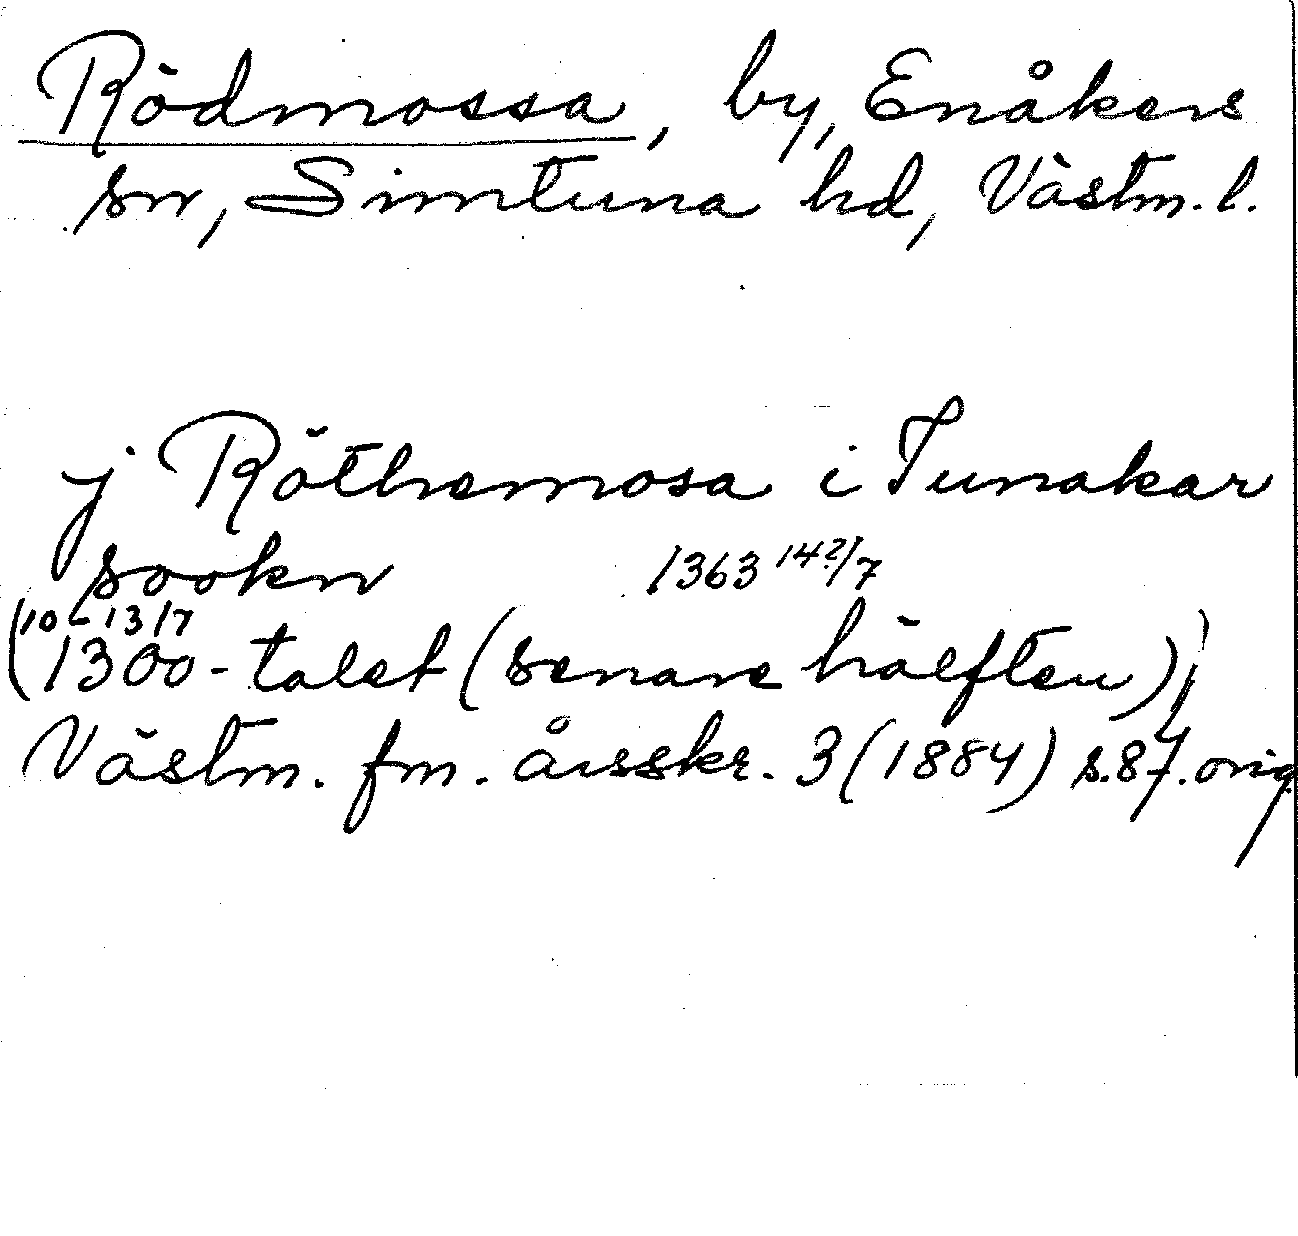 Rödmossa, by, Enåkers
sn, Simtuna hd, Västm. l.
j Röthemosa i Tunakar
sookn 1363 14?/7
(10-13/7
1300-talet (senare hälften));
Västm. fm. årsskr. 3 (1884) s. 87. orig.